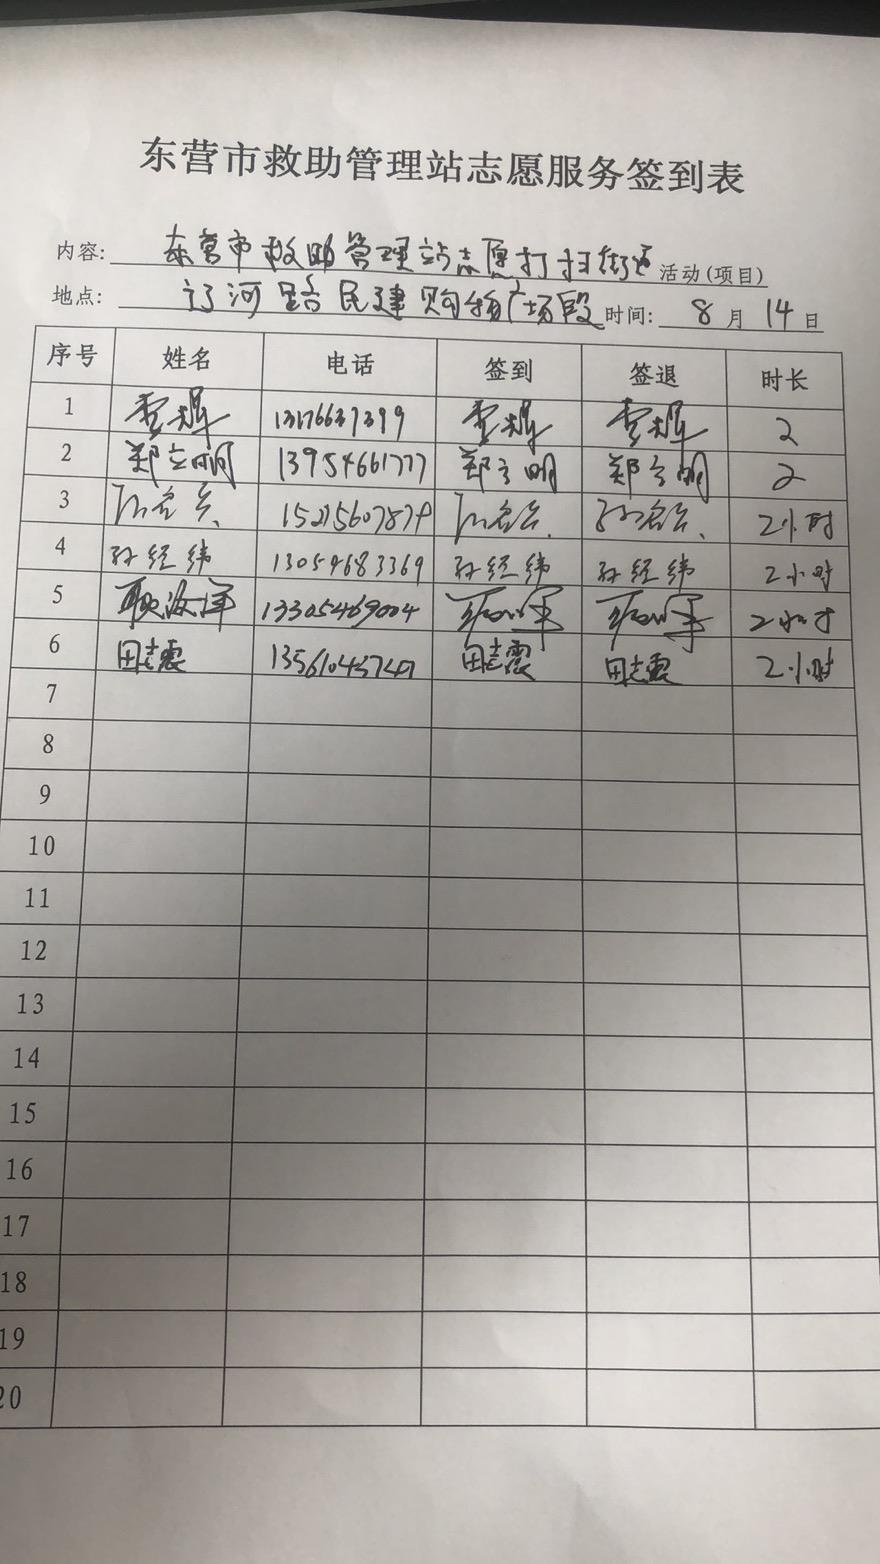 东营市救助管理站志愿服务签到表
内容: 东营市救助管理站志愿打扫街道 活动(项目)
地点: 辽河路民建购物广场段 时间: 8 月 14 日
序号 姓名 电话 签到 签退 时长
1 13176637399 2
2 郑立明 13954661777 郑立明 郑立明 2
3 2小时
4 孙经纬 13054683369 孙经纬 孙经纬 2小时
5 耿海洋 13305469004 2小时
6 田志震 田志震 田志震 2小时
7
8
9
10
11
12
13
14
15
16
17
18
19
20